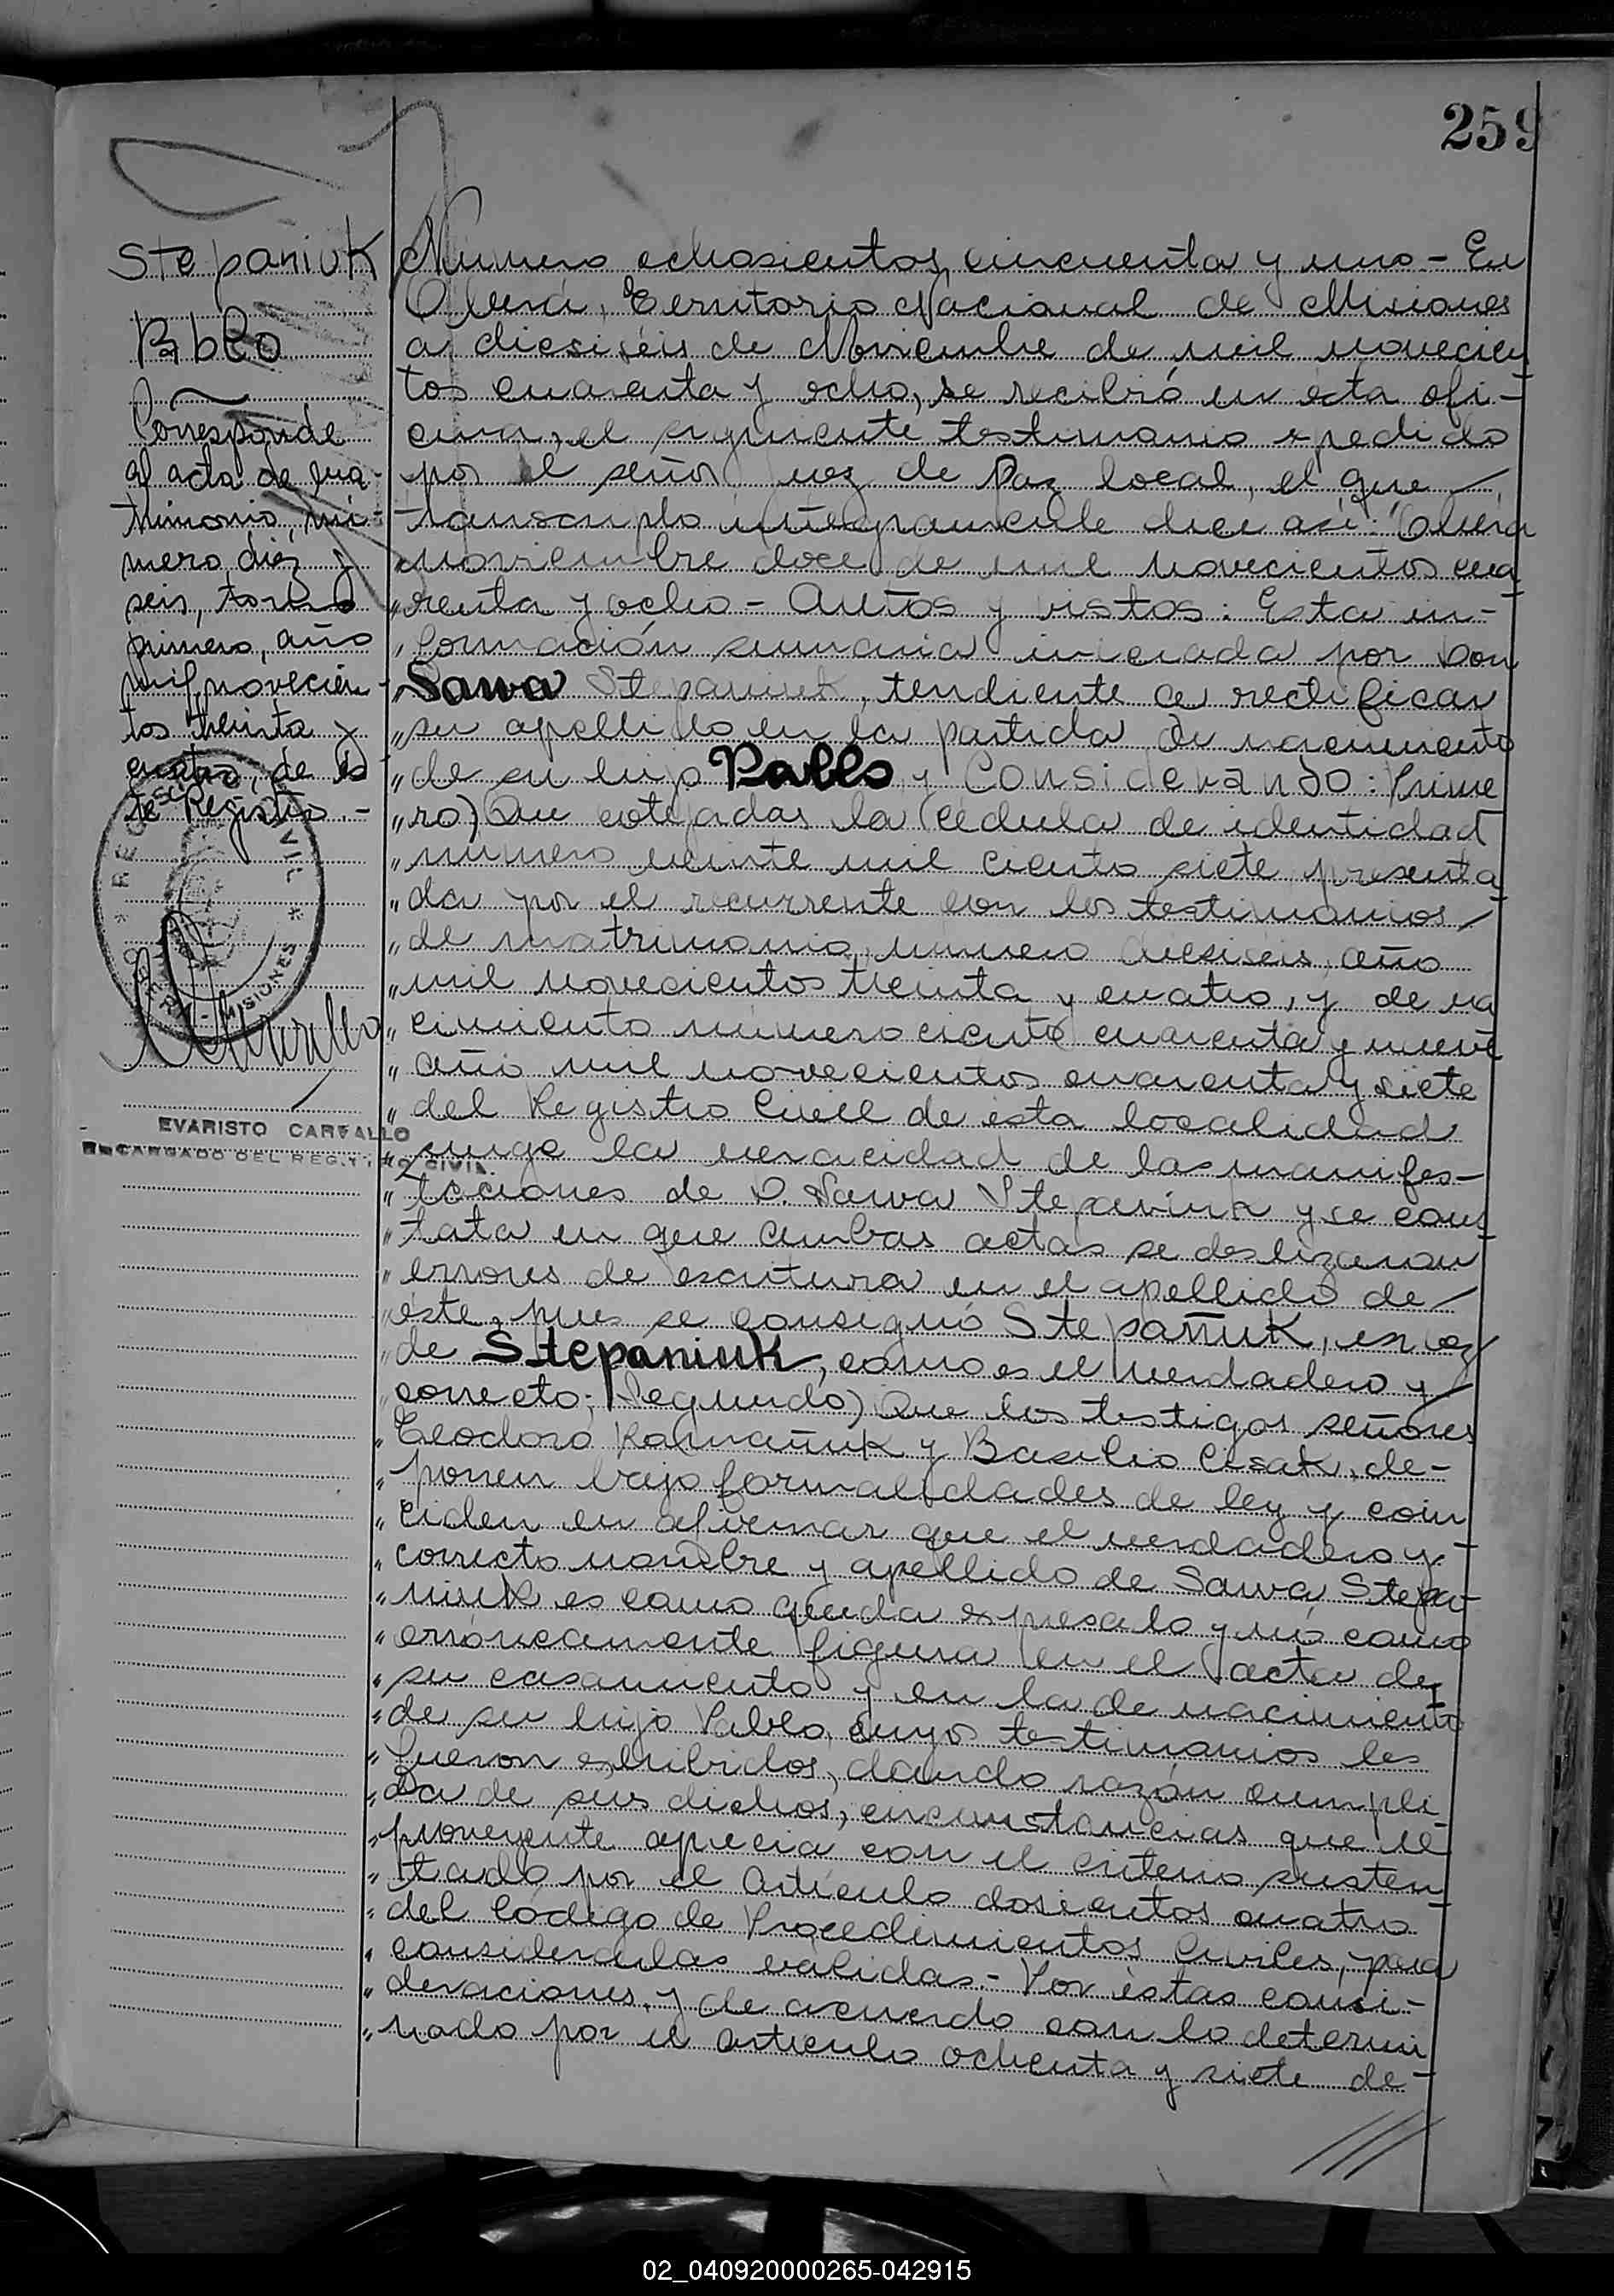 259
Stepaniuk
Pablo
Corresponde
al acta de ma-
trimonio, nú-
mero diez y
seis, tomo
primero, año
mil novecien-
tos treinta y
cuatro, de és
te Registro.-
REGISTRO CIVIL
OBERÁ
MISIONES
EVARISTO CARVALLO
ENCARGADO DEL REG. CIVIL
Número ochosientos cincuenta y uno - En
Oberá, Territorio Nacional de Misiones
a diesiséis de Noviembre de mil novecien
tos cuarenta y ocho, se recibió en ésta ofi-
cina, el siguiente testimonio expedido
por el señor Juez de Paz local, el que
transcripto íntegramente dice así: "Oberá
noviembre doce de mil novecientos cua
" renta y ocho - Autos y vistos: Esta in-
" formación sumaria iniciada por Don
" Sawa Stepaniuk, tendiente a rectificar
" su apellido en la partida de nacimiento
" de su hijo Pablo y Considerando: Prime
" ro) Que cotejadas la cédula de identidad
" número veinte mil ciento siete presenta
" da por el recurrente con los testimonios
" de matrimonio número diesiseis, año
" mil novecientos treinta y cuatro, y de na
" cimiento número ciento cuarenta y nueve
" año mil novecientos cuarenta y siete
" del Registro Civil de ésta localidad
" surge la veracidad de las manifes-
" taciones de D. Sawa Stepaniuk y se cons
" tata en que ambas actas se deslizaron
" errores de escritura en el apellido de
" éste, pues se consignó Stepañuk, en vez
" de Stepaniuk, como es el verdadero y
correcto; Segundo) Que los testigos señores
" Teodoro Romañuk y Basilio Cisak, de-
" ponen bajo formalidades de ley y coin
" ciden en afirmar que el verdadero y
" correcto nombre y apellido de Sawa Stepa-
" niuk es como queda expresado y nó como
" erróneamente figura en el acta de
" su casamiento y en la de nacimiento
" de su hijo Pablo, cuyos testimonios les
" fueron exhibidos, dando razón cumpli
" da de sus dichos, circunstancias que el
" proveyente aprecia con el criterio susten
" tado por el Artículo dosientos cuatro
" del Código de Procedimientos Civiles, para
" considerarlas válidas.- Por éstas consi-
" deraciones, y de acuerdo con lo determi
" nado por el artículo ochenta y siete de-
02_040920000265-042915